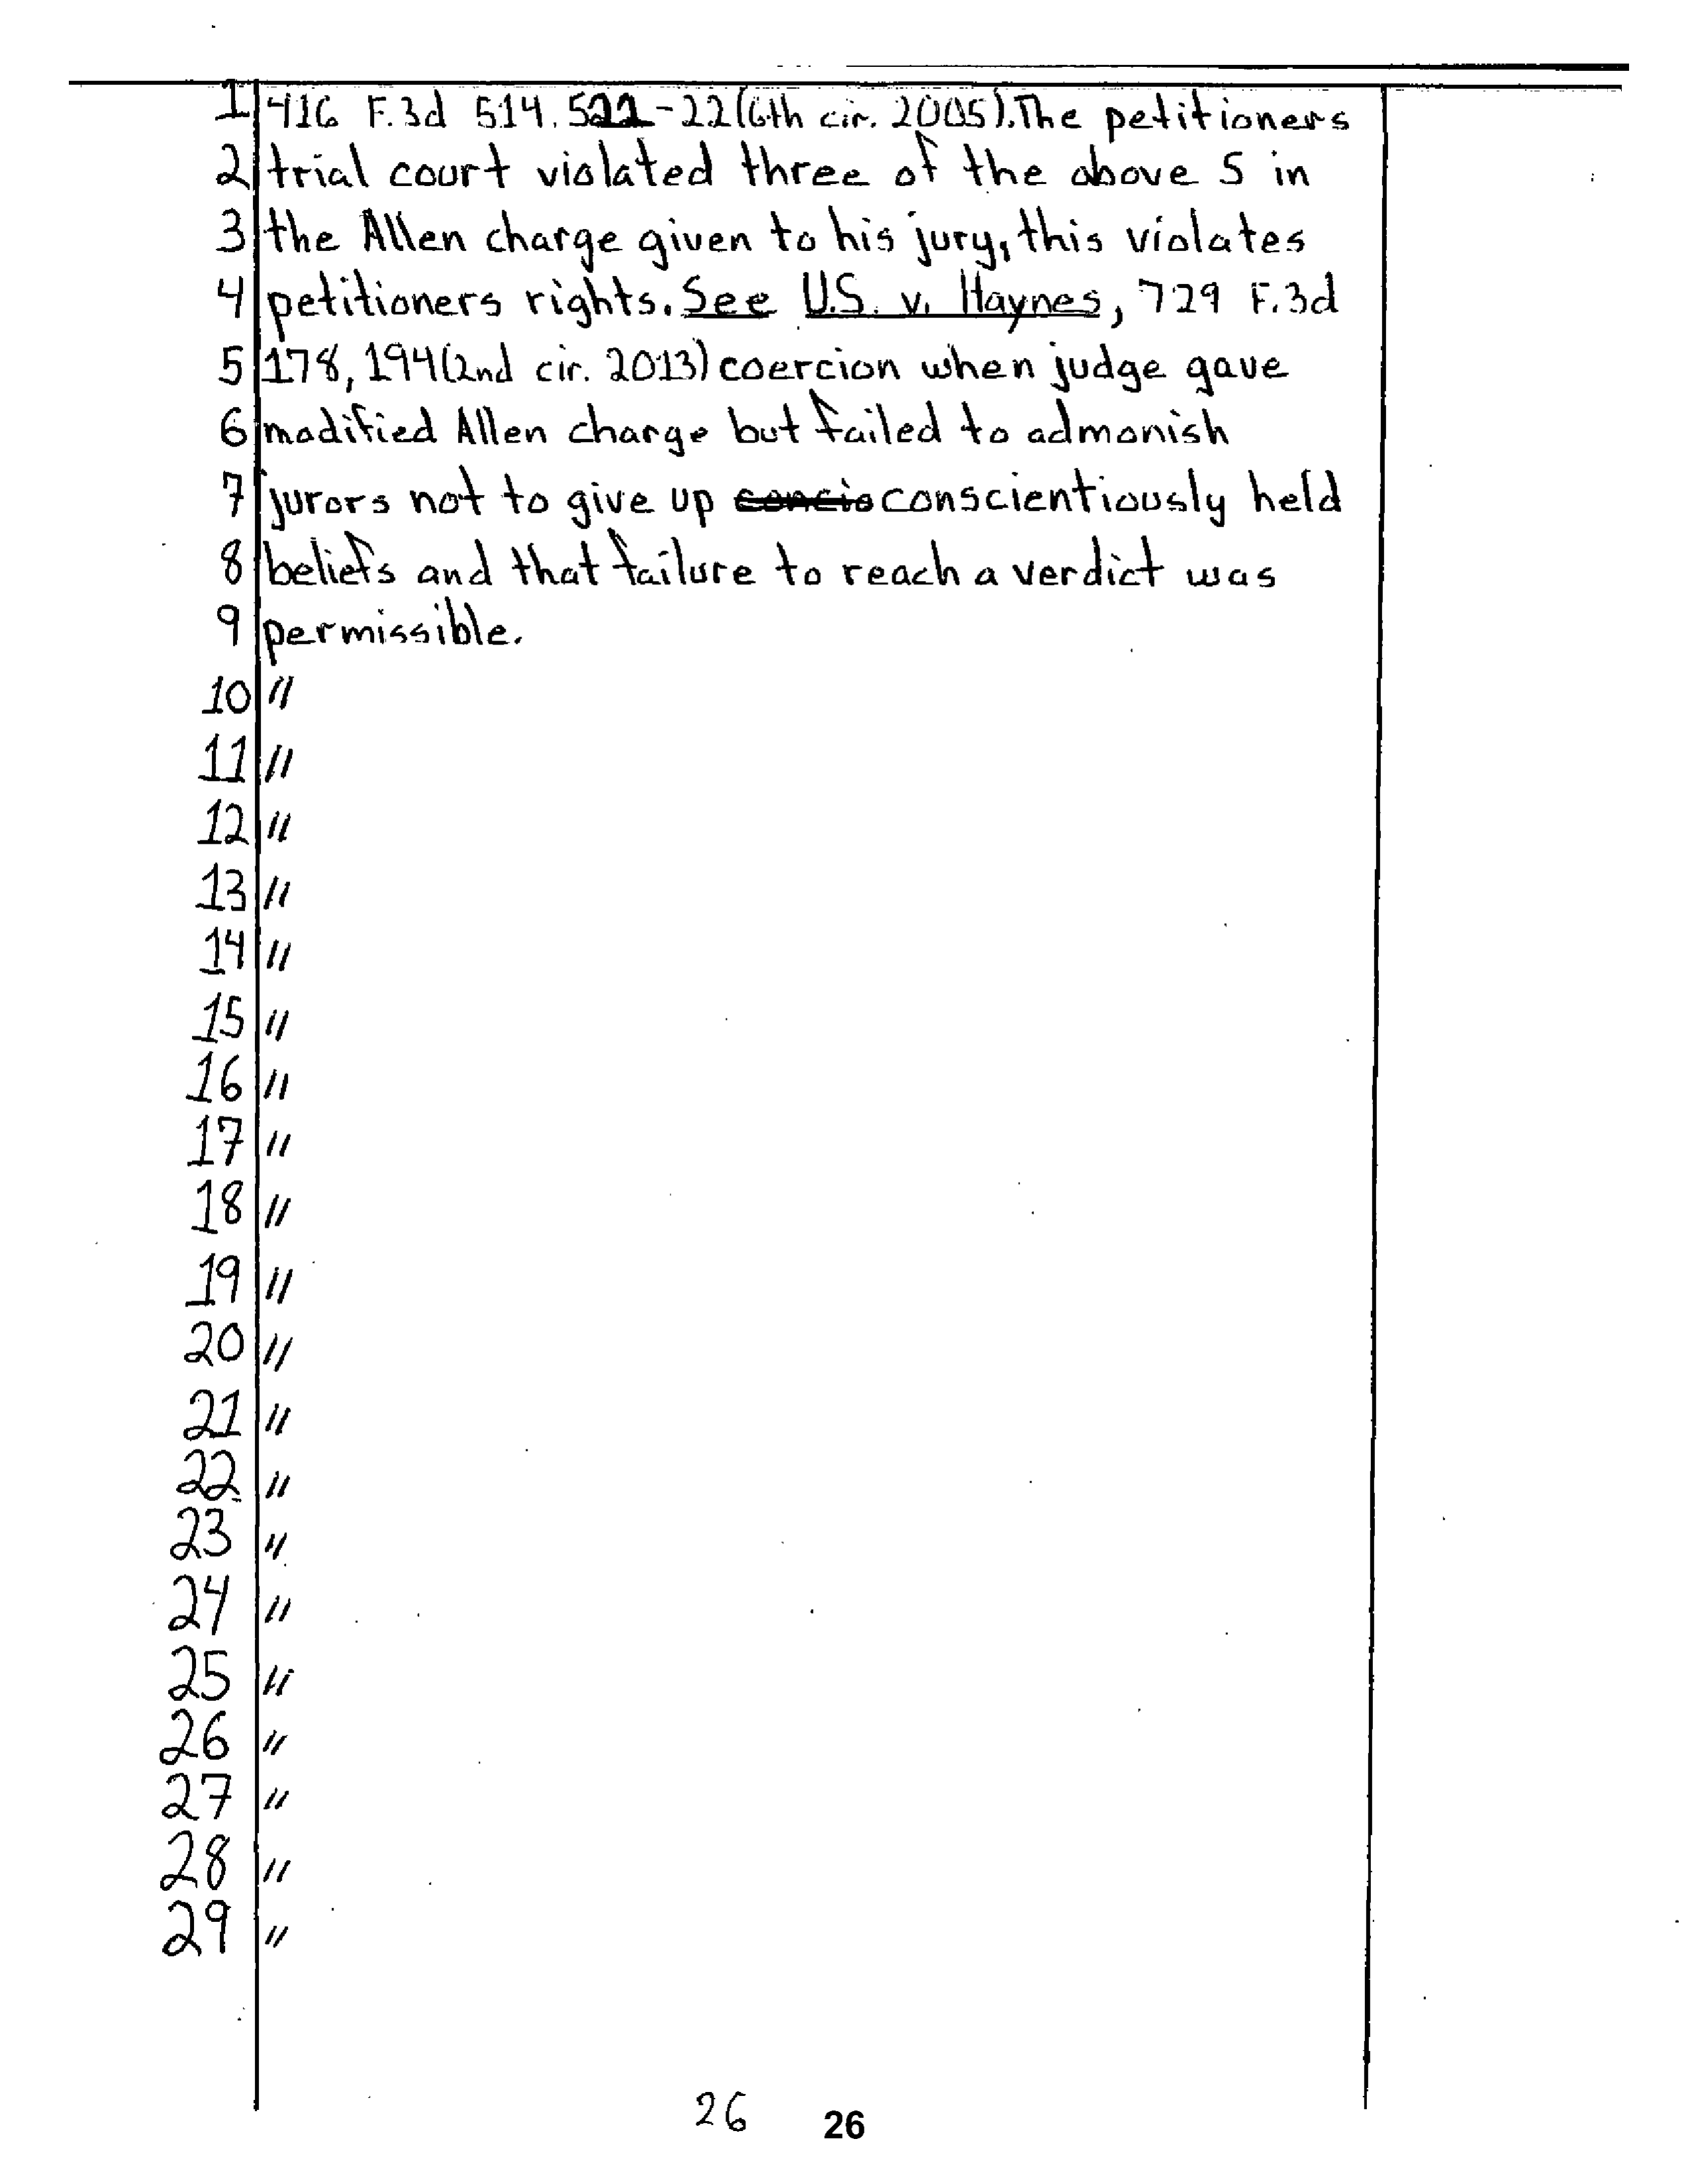 1 416 F.3d 514. 522-22(6th cir. 2005). The petitioners
2 trial court violated three of the above 5 in
3 the Allen charge given to his jury, this violates
4 petitioners rights. See U.S. v. Haynes, 729 F.3d
5 178, 194(2nd cir. 2013) coercion when judge gave
6 modified Allen charge but failed to admonish
7 jurors not to give up concio conscientiously held
8 beliefs and that failure to reach a verdict was
9 permissible.
10 //
11 //
12 //
13 //
14 //
15 //
16 //
17 //
18 //
19 //
20 //
21 //
22 //
23 //
24 //
25 //
26 //
27 //
28 //
29 //
26 26